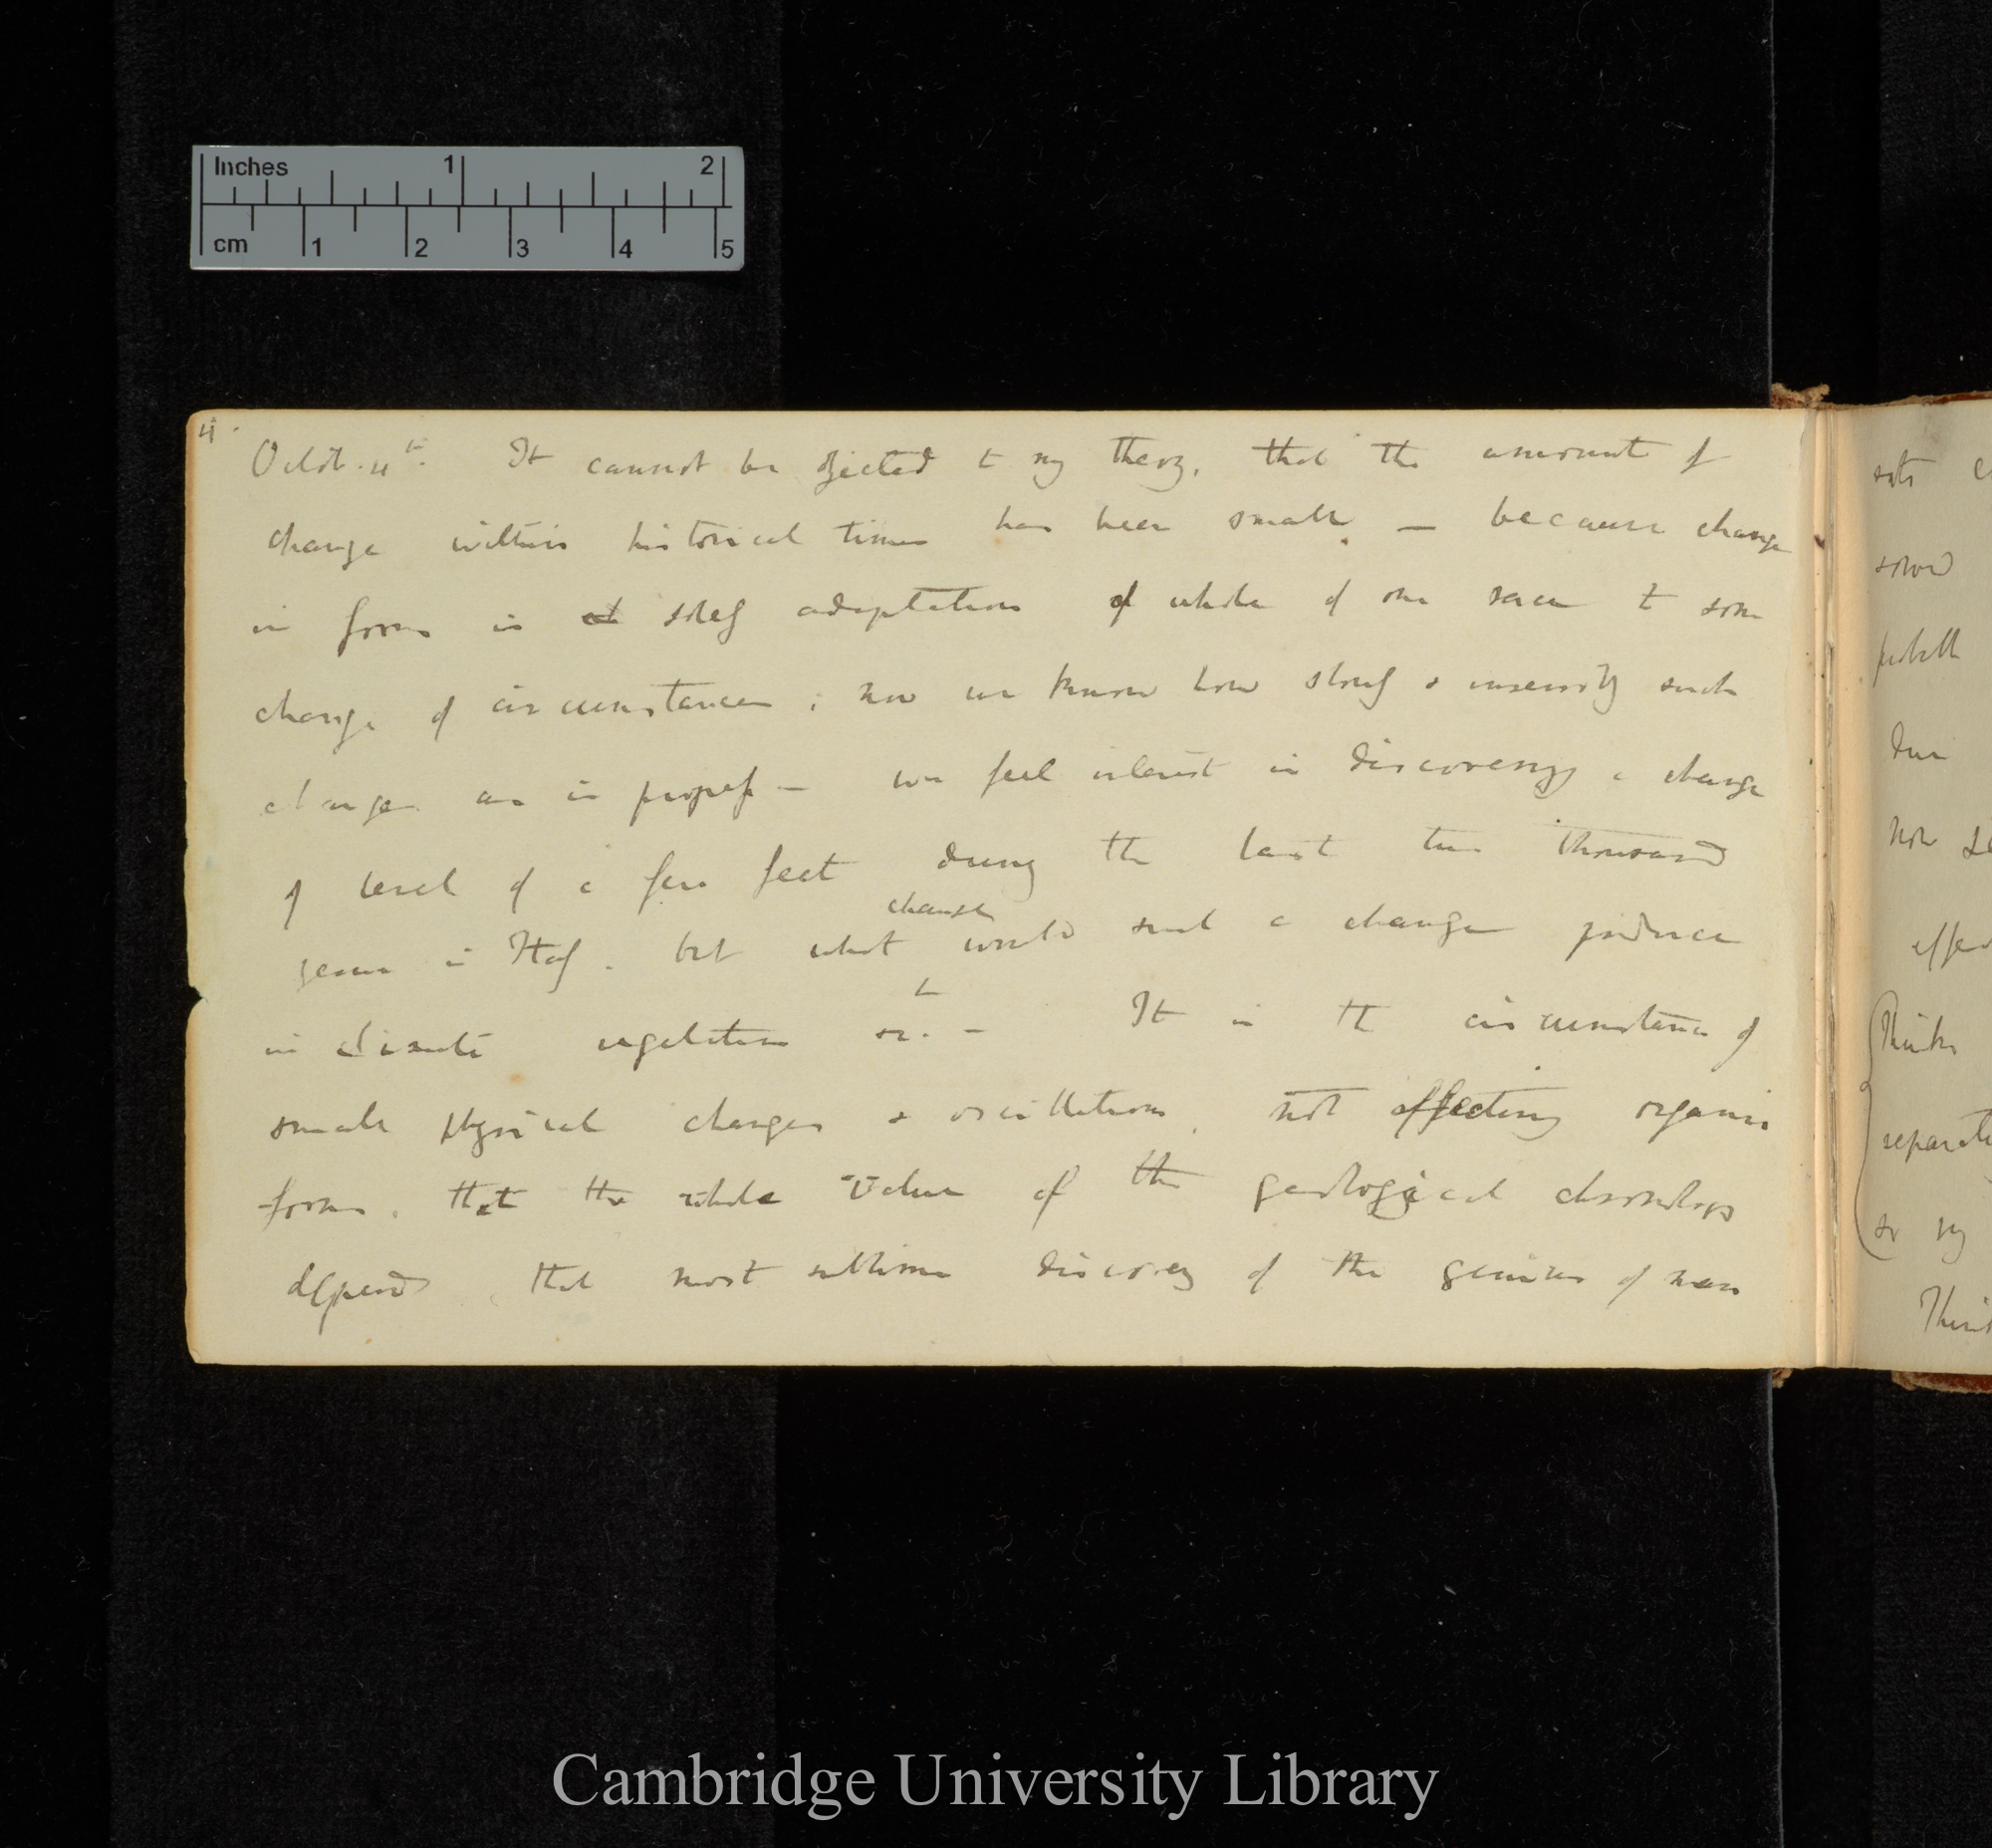 Inches 1 2
cm 1 2 3 4 5
4
Octob. 4th. It cannot be objected to my theory, that the amount of
change within historical times has been small — because change
in forms is solely adaptation of whole of one race to some
change of circumstances; now we know how slowly & insensibly such
changes are in progress — we feel interest in discovering a change
of level of a few feet during the last two thousand
years in Italy. but what
changes
would such a change produce
in climate vegetation &c. — It is the circumstance of
small physical changes & oscillations, not affecting organic
forms, that the whole value of the geological chronology
depends that most sublime discovery of the genius of man
sep
effe
Think
separate
so my
Think
Cambridge University Library